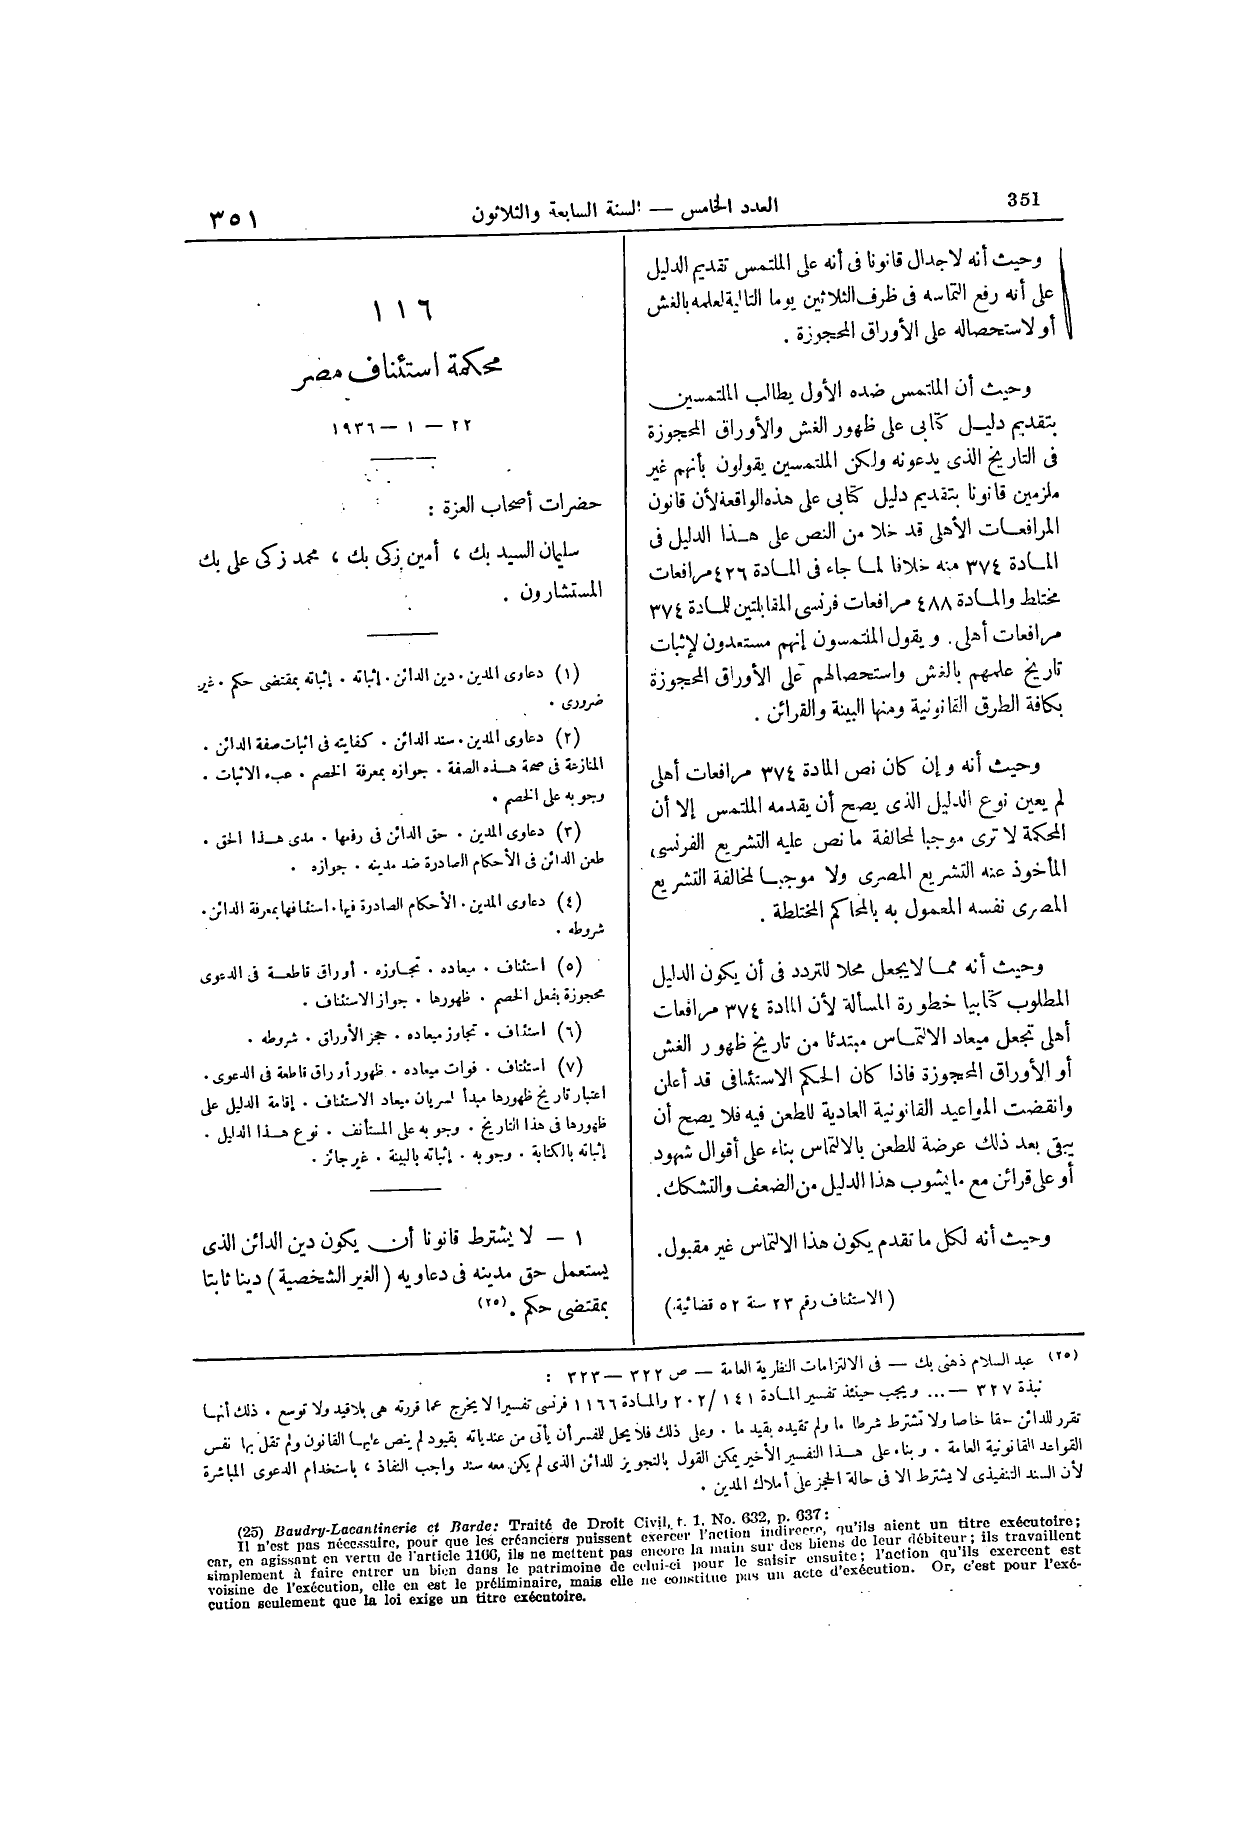 351
العدد الخامس — السنة السابعة والثلاثون
٣٥١
وحيث أنه لاجدال قانونا فى أنه على الملتمس تقديم الدليل
على أنه رفع التماسه فى ظرف الثلاثين يوما التالية لعلمه بالغش
أو لاستحصاله على الأوراق المحجوزة .
وحيث أن الملتمس ضده الأول يطالب الملتمسين
بتقديم دليل كتابى على ظهور الغش والأوراق المحجوزة
فى التاريخ الذى يدعونه ولكن الملتمسين يقولون بأنهم غير
ملزمين قانونا بتقديم دليل كتابى على هذه الواقعة لأن قانون
المرافعات الأهلى قد خلا من النص على هذا الدليل فى
المادة ٣٧٤ منه خلافا لما جاء فى المادة ٤٢٦ مرافعات
مختلط والمادة ٤٨٨ مرافعات فرنسى المقابلتين للمادة ٣٧٤
مرافعات أهلى . و يقول الملتمسون إنهم مستعدون لإثبات
تاريخ علمهم بالغش واستحصالهم على الأوراق المحجوزة
بكافة الطرق القانونية ومنها البينة والقرائن .
وحيث أنه و إن كان نص المادة ٣٧٤ مرافعات أهلى
لم يعين نوع الدليل الذى يصح أن يقدمه الملتمس إلا أن
المحكمة لا ترى موجبا لمخالفة ما نص عليه التشريع الفرنسى
المأخوذ عنه التشريع المصرى ولا موجبا لمخالفة التشريع
المصرى نفسه المعمول به بالمحاكم المختلطة .
وحيث أنه مما لا يجعل محلا للتردد فى أن يكون الدليل
المطلوب كتابيا خطورة المسألة لأن المادة ٣٧٤ مرافعات
أهلى تجعل ميعاد الالتماس مبتدئا من تاريخ ظهور الغش
أو الأوراق المحجوزة فاذا كان الحكم الاستئنافى قد أعلن
وانقضت المواعيد القانونية العادية للطعن فيه فلا يصح أن
يبقى بعد ذلك عرضة للطعن بالالتماس بناء على أقوال شهود
أو على قرائن مع ما يشوب هذا الدليل من الضعف والتشكك .
وحيث أنه لكل ما تقدم يكون هذا الالتماس غير مقبول .
( الاستئناف رقم ٢٣ سنة ٥٢ قضائية )
١١٦
محكمة استئناف مصر
٢٢ - ١ - ١٩٣٦
حضرات أصحاب العزة :
سليمان السيد بك ، أمين زكى بك ، محمد زكى على بك
المستشارون .
(١) دعاوى المدين . دين الدائن . إثباته . إثباته بمقتضى حكم . غير
ضرورى .
(٢) دعاوى المدين . سند الدائن . كفايته فى اثبات صفة الدائن .
المنازعة فى صحة هذه الصفة . جوازه بمعرفة الخصم . عبء الاثبات .
وجوبه على الخصم .
(٣) دعاوى المدين . حق الدائن فى رفعها . مدى هذا الحق .
طعن الدائن فى الأحكام الصادرة ضد مدينه . جوازه .
(٤) دعاوى المدين . الأحكام الصادرة فيها . استئنافها بمعرفة الدائن .
شروطه .
(٥) استئناف . ميعاده . تجاوزه . أوراق قاطعة فى الدعوى
محجوزة بفعل الخصم . ظهورها . جواز الاستئناف .
(٦) استئناف . تجاوز ميعاده . حجز الأوراق . شروطه .
(٧) استئناف . فوات ميعاده . ظهور أوراق قاطعة فى الدعوى .
اعتبار تاريخ ظهورها مبدأ لسريان ميعاد الاستئناف . إقامة الدليل على
ظهورها فى هذا التاريخ . وجوبه على المستأنف . نوع هذا الدليل .
إثباته بالكتابة . وجوبه . إثباته بالبينة . غير جائز .
١ – لا يشترط قانونا أن يكون دين الدائن الذى
يستعمل حق مدينه فى دعاويه ( الغير الشخصية ) دينا ثابتا
بمقتضى حكم . (٢٥)
(٢٥) عبد السلام ذهنى بك — فى الالتزامات النظرية العامة — ص ٣٢٢ — ٣٢٣ :
نبذة ٣٢٧ — ... و يجب حينئذ تفسير المادة ١٤١ / ٢٠٢ والمادة ١١٦٦ فرنسى تفسيرا لا يخرج عما قررته هى بلا قيد ولا توسع . ذلك أنها
تقرر للدائن حقا خاصا ولا تشترط شرطا ما ولم تقيده بقيد ما . وعلى ذلك فلا يحل للمفسر أن يأتى من عندياته بقيود لم ينص عليها القانون ولم تقل بها نفس
القواعد القانونية العامة . و بناء على هذا التفسير الأخير يمكن القول بالتجويز للدائن الذى لم يكن معه سند واجب النفاذ ، باستخدام الدعوى المباشرة
لأن السند التنفيذى لا يشترط الا فى حالة الحجز على أملاك المدين .
(25) Baudry-Lacantinerie et Barde: Traité de Droit Civil, t. 1, No. 632, p. 637:
Il n'est pas nécessaire, pour que les créanciers puissent exercer l'action indirecte, qu'ils aient un titre exécutoire;
car, en agissant en vertu de l'article 1166, ils ne mettent pas encore la main sur des biens de leur débiteur; ils travaillent
simplement à faire entrer un bien dans le patrimoine de celui-ci pour le saisir ensuite; l'action qu'ils exercent est
voisine de l'exécution, elle en est le préliminaire, mais elle ne constitue pas un acte d'exécution. Or, c'est pour l'exé-
cution seulement que la loi exige un titre exécutoire.